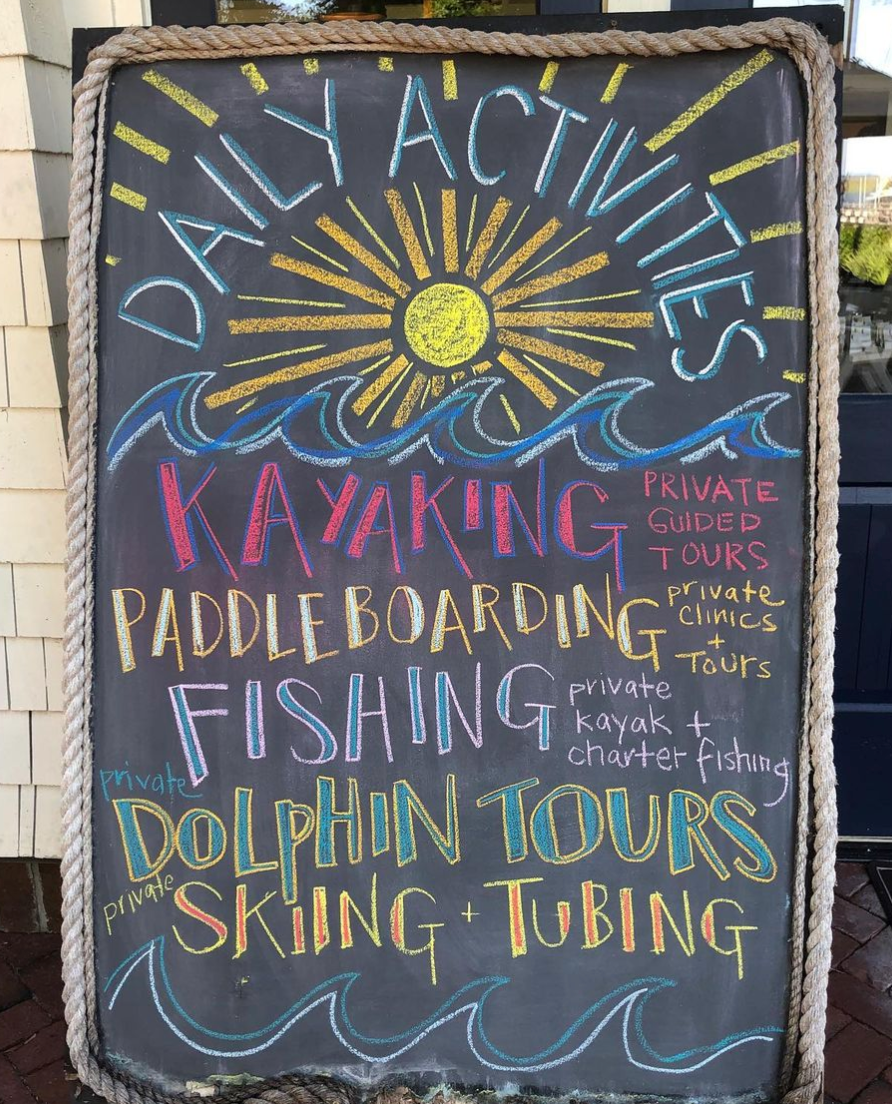 DAILY ACTIVITIES
KAYAKING
PRIVATE
GUIDED
TOURS
PADDLEBOARDING
private
clinics
+
Tours
FISHING
private
kayak +
charter fishing
private
DOLPHIN TOURS
private
SKIING + TUBING